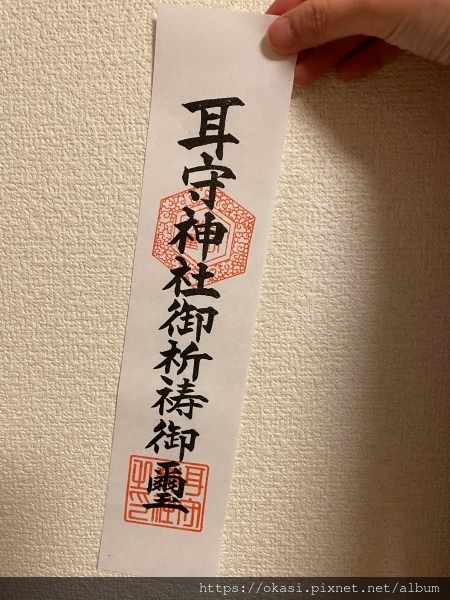 耳守神社御祈祷御璽
耳守
神社
之印
https://okasi.pixnet.net/album